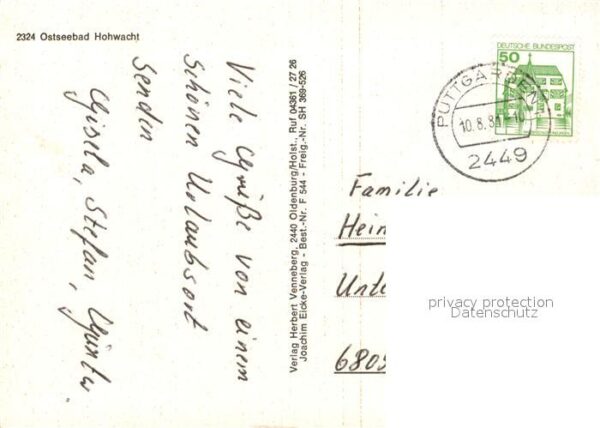 2324 Ostseebad Hohwacht
Viele Grüße von einem
Schönen Urlaubsort
Senden
Gisela, Stefan, Günter.
Verlag Herbert Venneberg, 2440 Oldenburg/Holst., Ruf 04361 / 27 26
Joachim Eicke-Verlag - Best.-Nr. F 544 - Freig.-Nr. SH 369-526
DEUTSCHE BUNDESPOST
50
PUTTGARDEN
10.8.81
2449
Familie
Hein
Unte
6805
privacy protection
Datenschutz